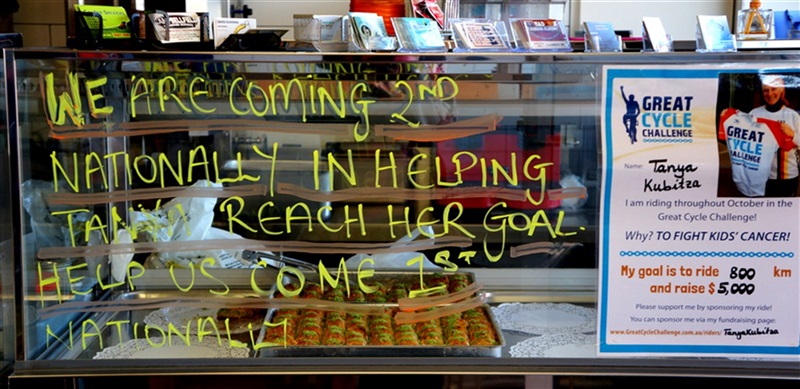 WE ARE COMING 2ND
NATIONALLY IN HELPING
TANYA REACH HER GOAL.
HELP US COME 1ST
NATIONALLY
GREAT
CYCLE
CHALLENGE
GREAT
CYCLE
CHALLENGE
Name: Tanya
Kubitza
I am riding throughout October in the
Great Cycle Challenge!
Why? TO FIGHT KIDS' CANCER!
My goal is to ride 800 km
and raise $ 5,000
Please support me by sponsoring my ride!
You can sponsor me via my fundraising page:
www.GreatCycleChallenge.com.au/riders/TanyaKubitza